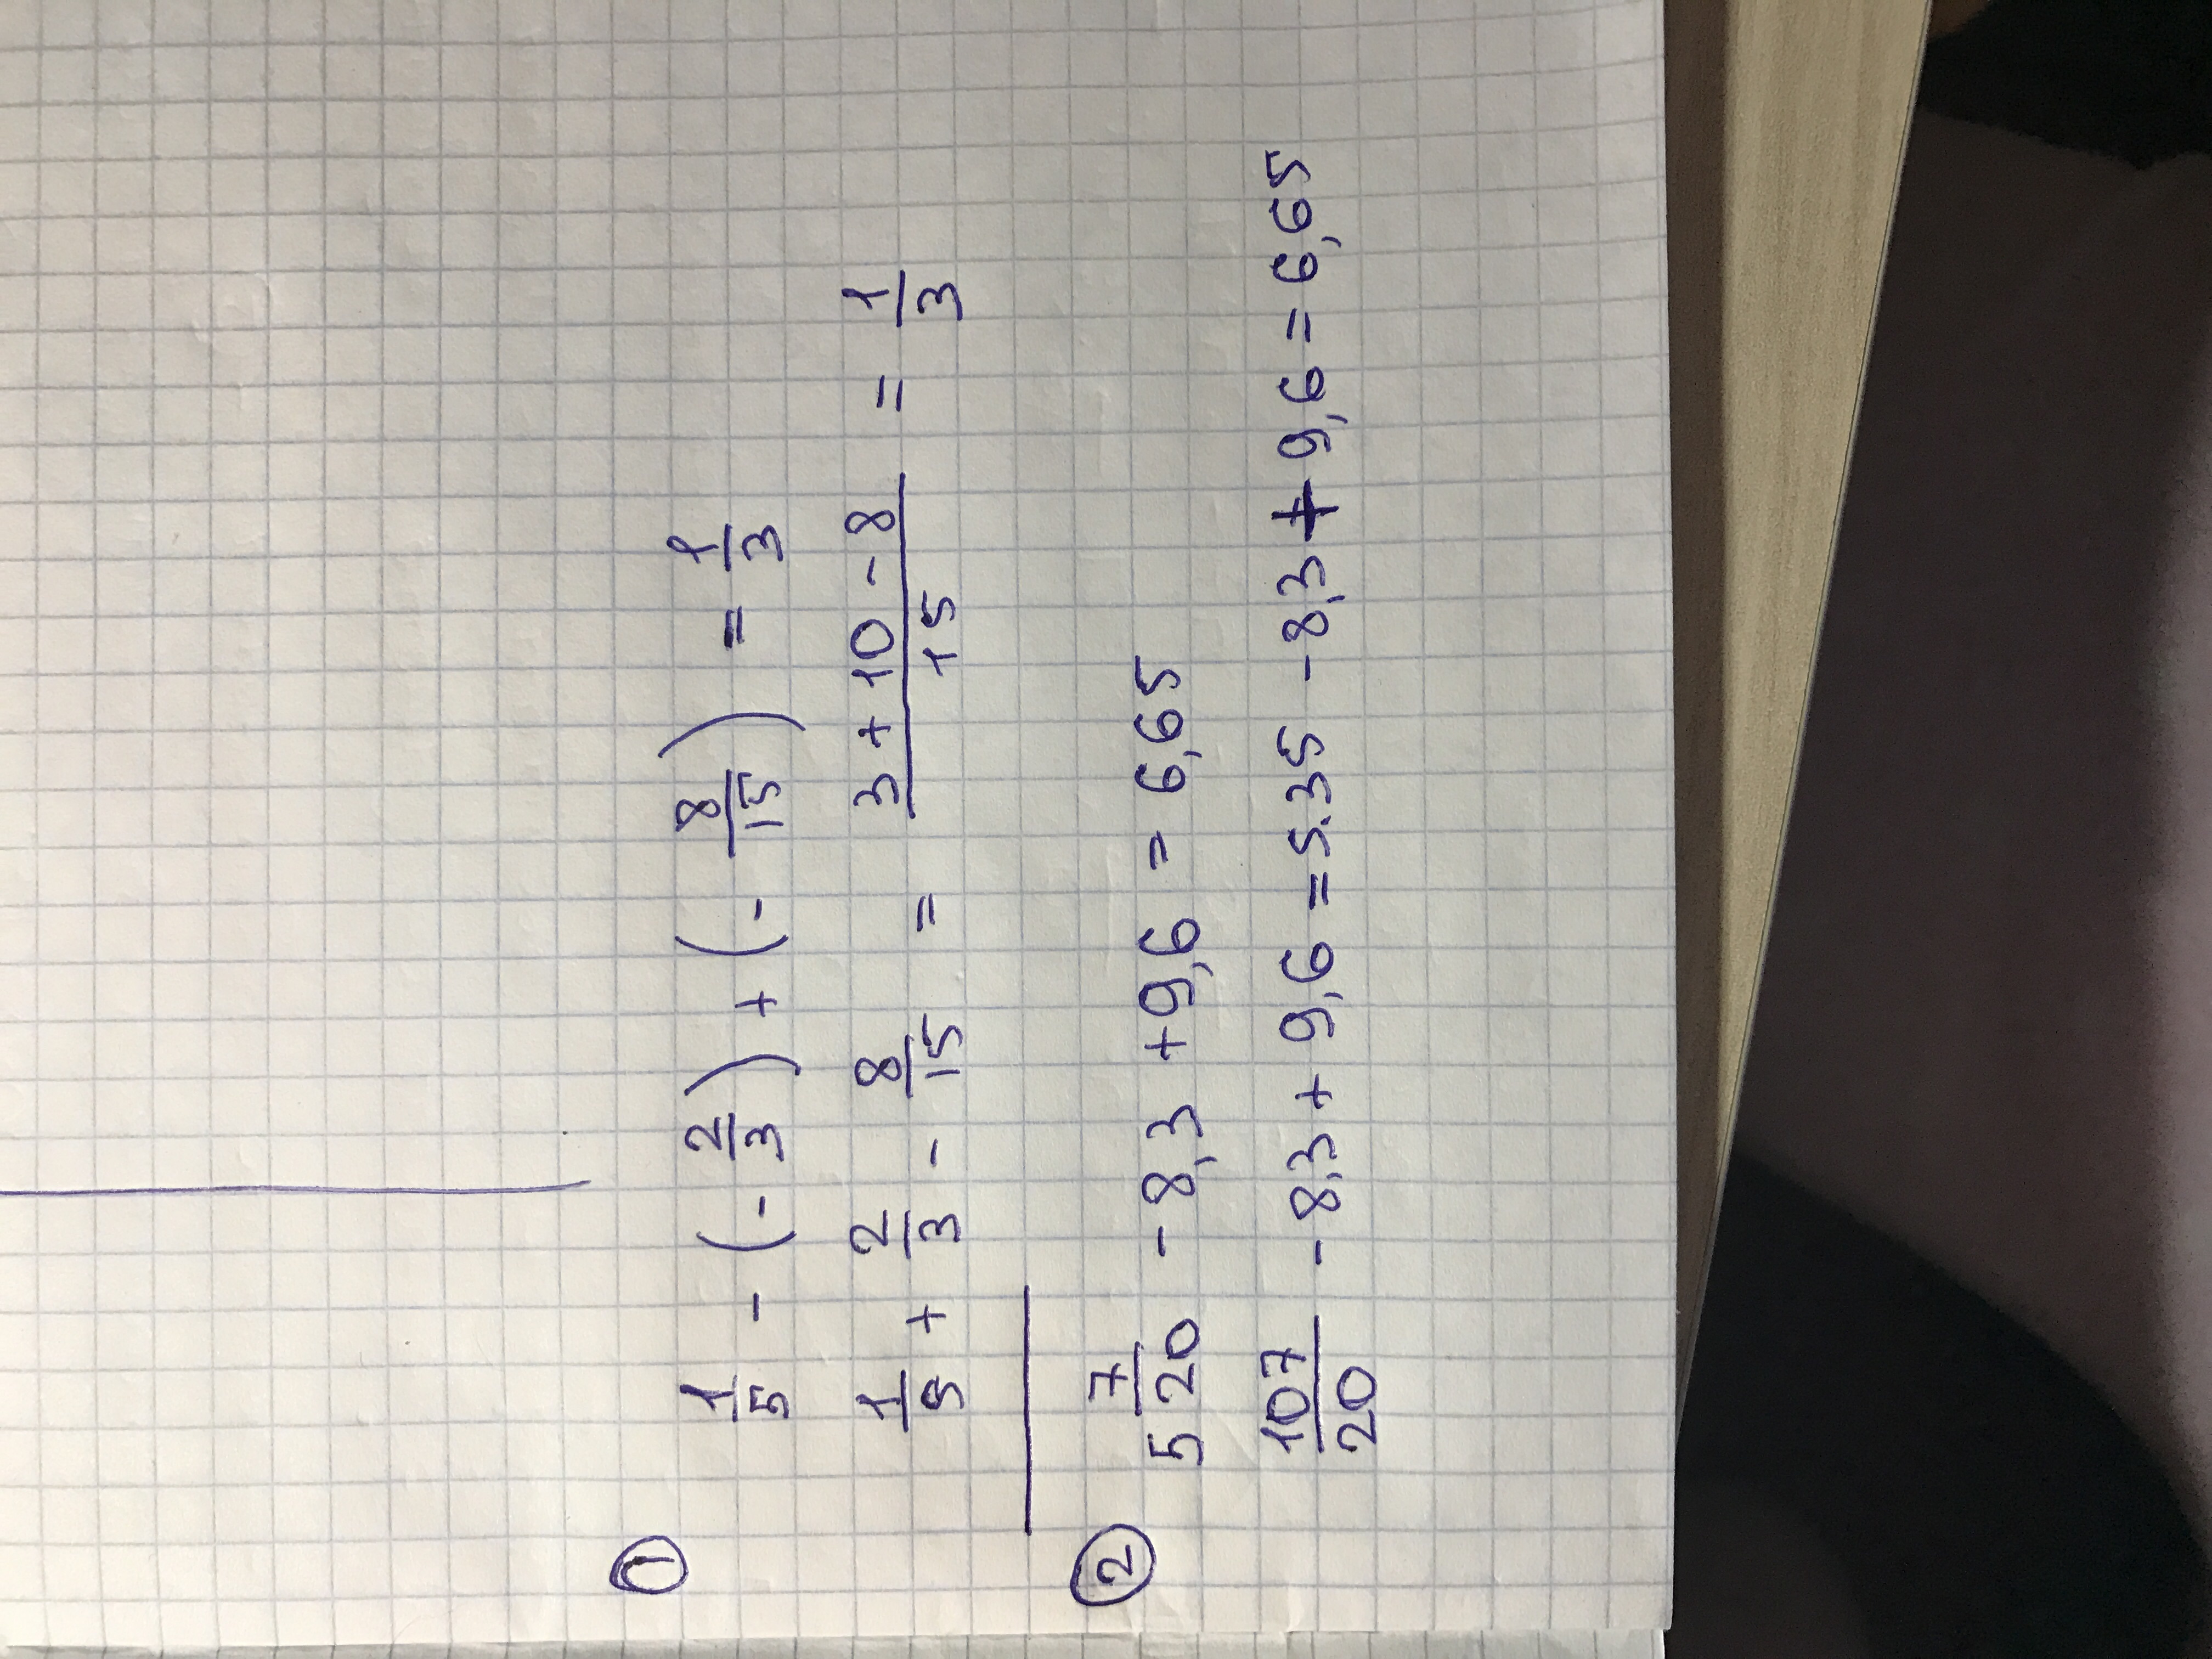 ① 1/5 - (- 2/3) + (- 8/15) = 1/3
1/5 + 2/3 - 8/15 = (3 + 10 - 8)/15 = 1/3
② 5 7/20 - 8,3 + 9,6 = 6,65
107/20 - 8,3 + 9,6 = 5.35 - 8,3 + 9,6 = 6,65